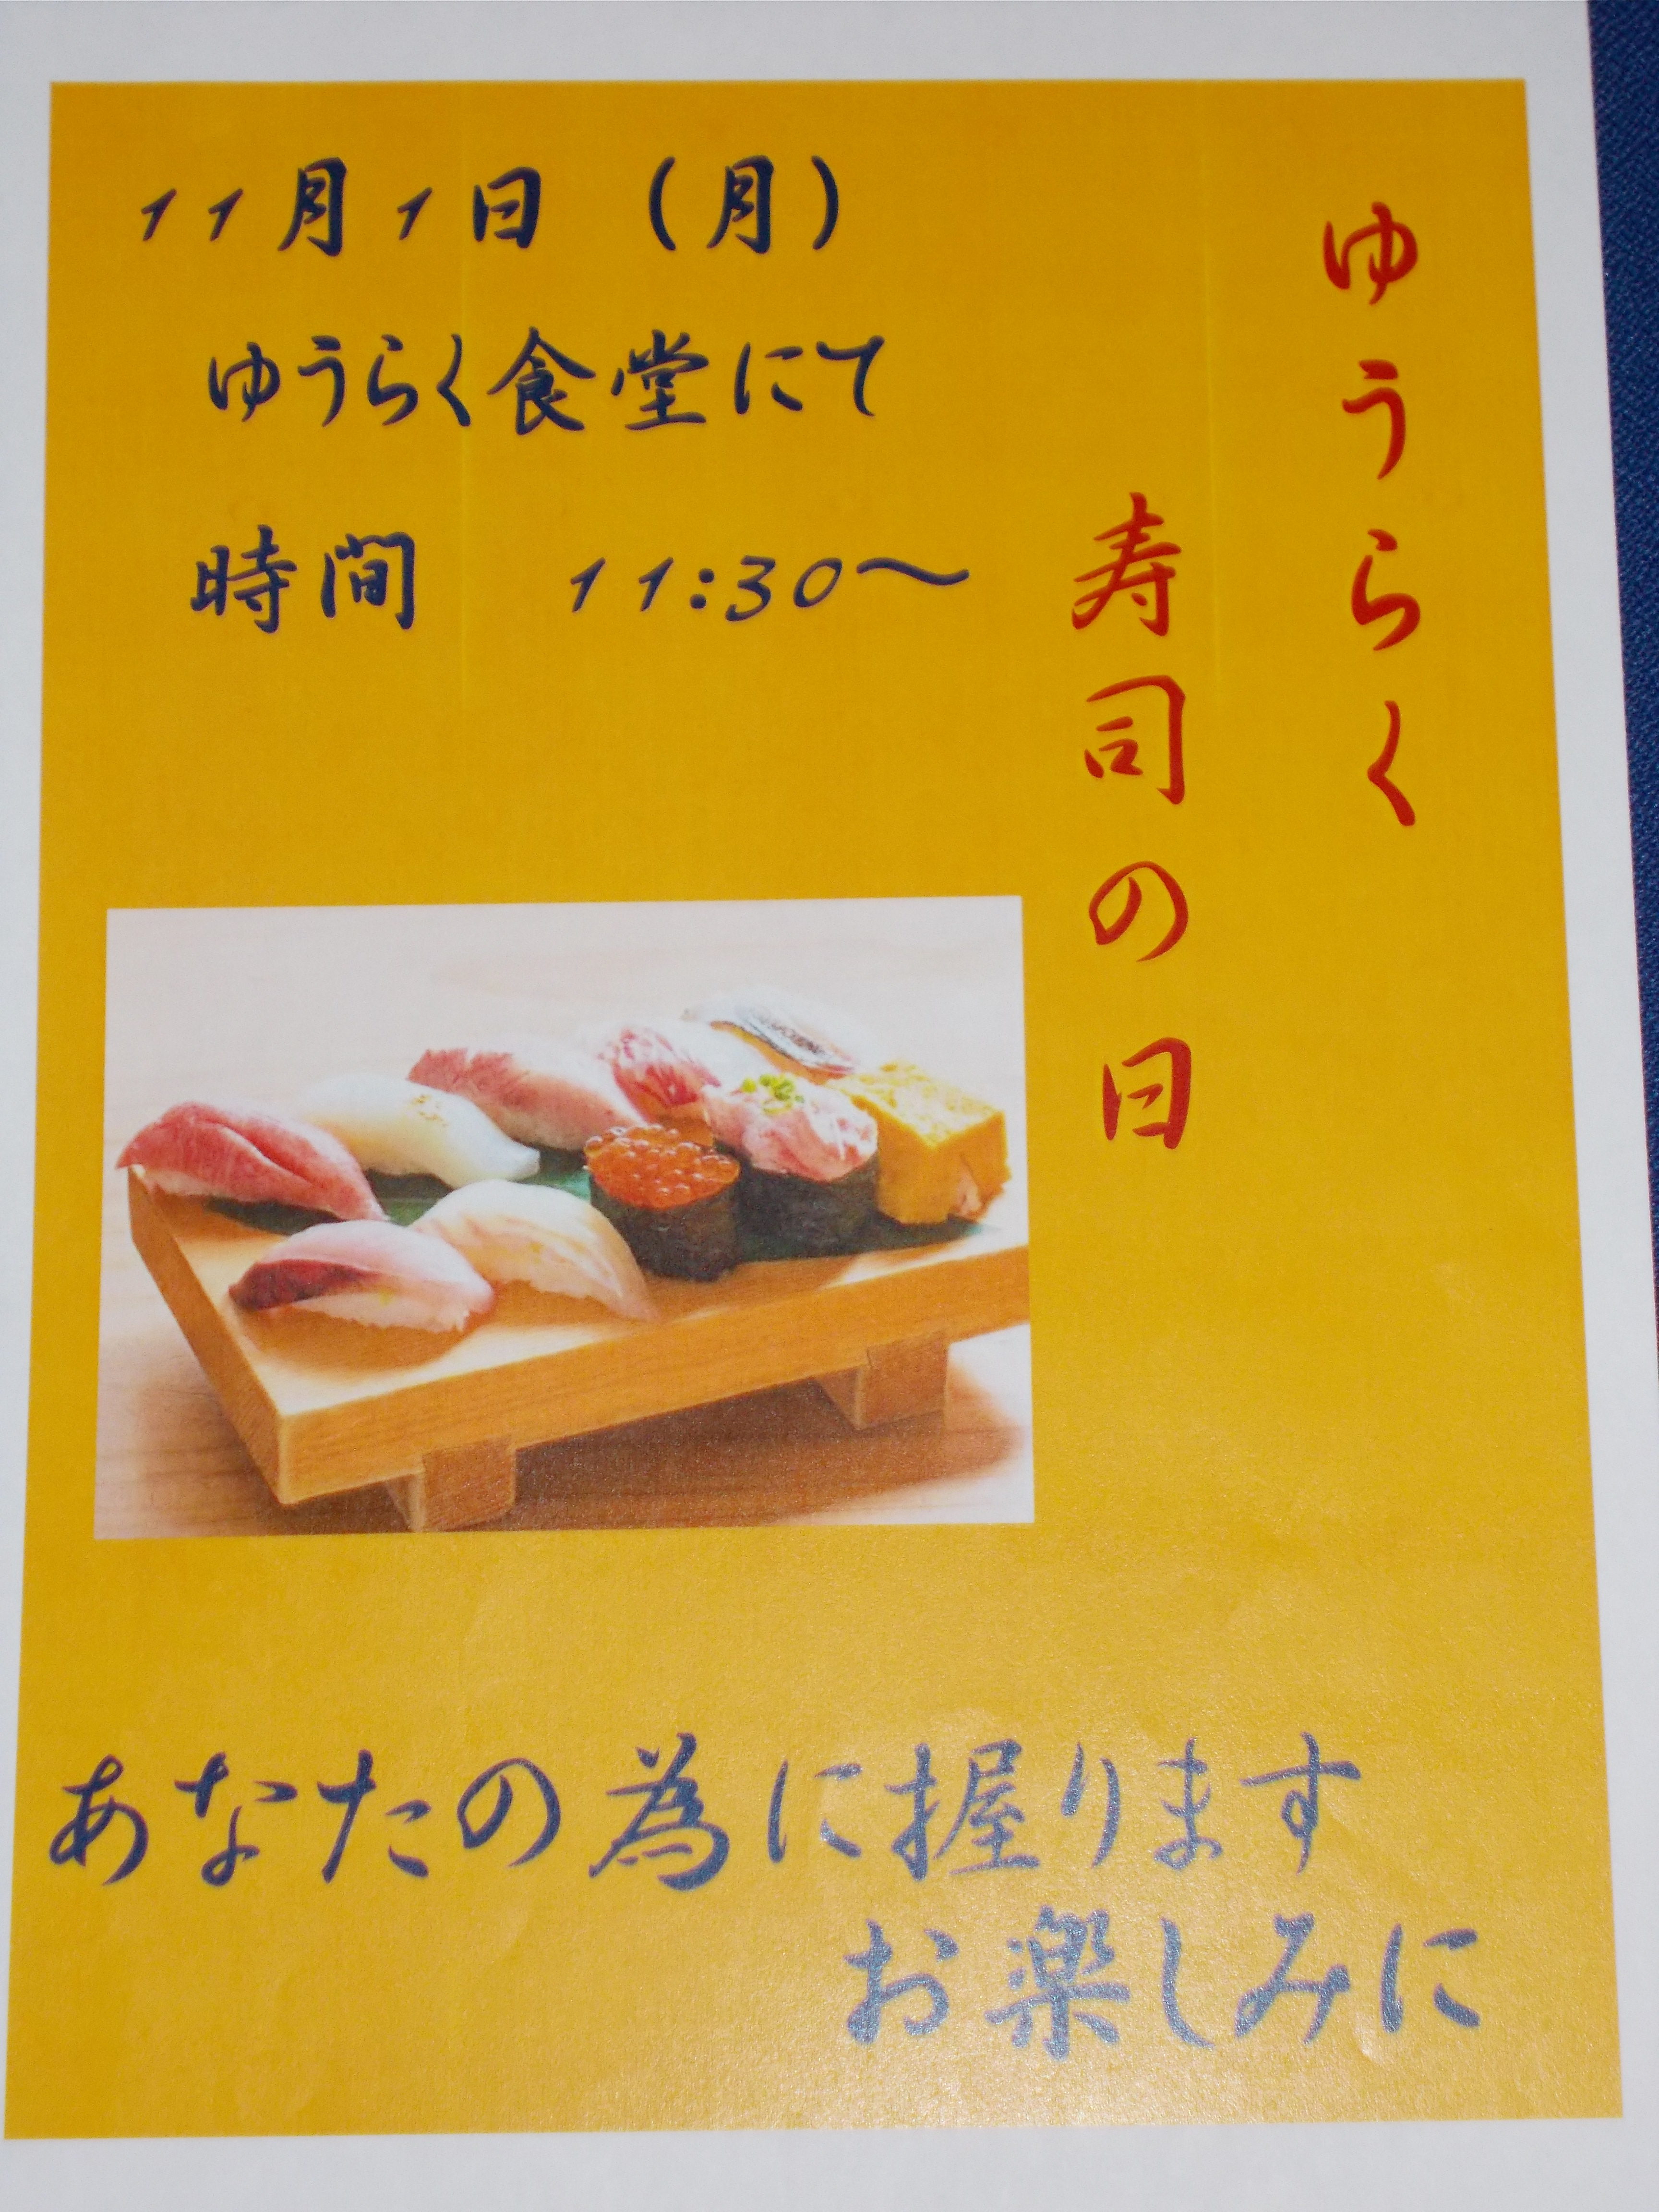 ゆうらく
寿司の日
11月1日 (月)
ゆうらく食堂にて
時間 11:30～
あなたの為に握ります
お楽しみに